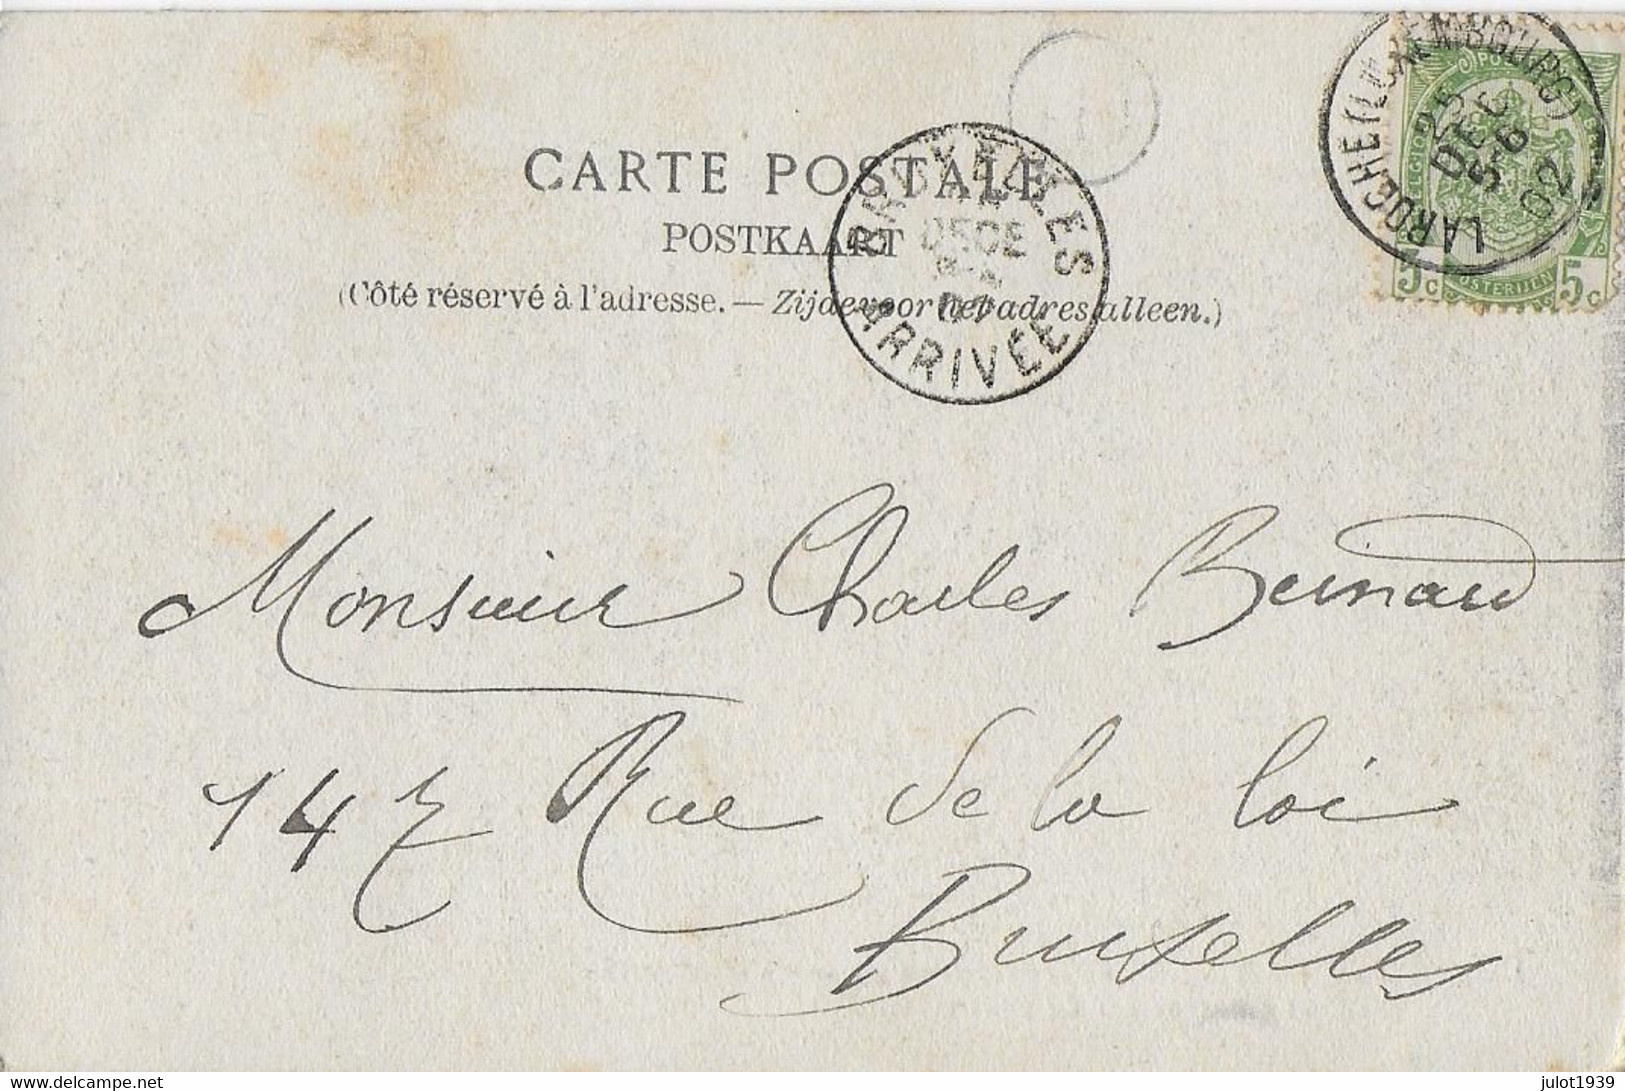 CARTE POSTALE
POSTKAART
(Côté réservé à l'adresse. — Zijde voor het adres alleen.)
BRUXELLES
DECE
ARRIVÉE
LAROCHE (LUXEMBOURG)
25
DEC
5-6
02
5c 5c
Monsieur Charles Bernard
147 Rue de la loi
Bruxelles
www.delcampe.net
julot1939